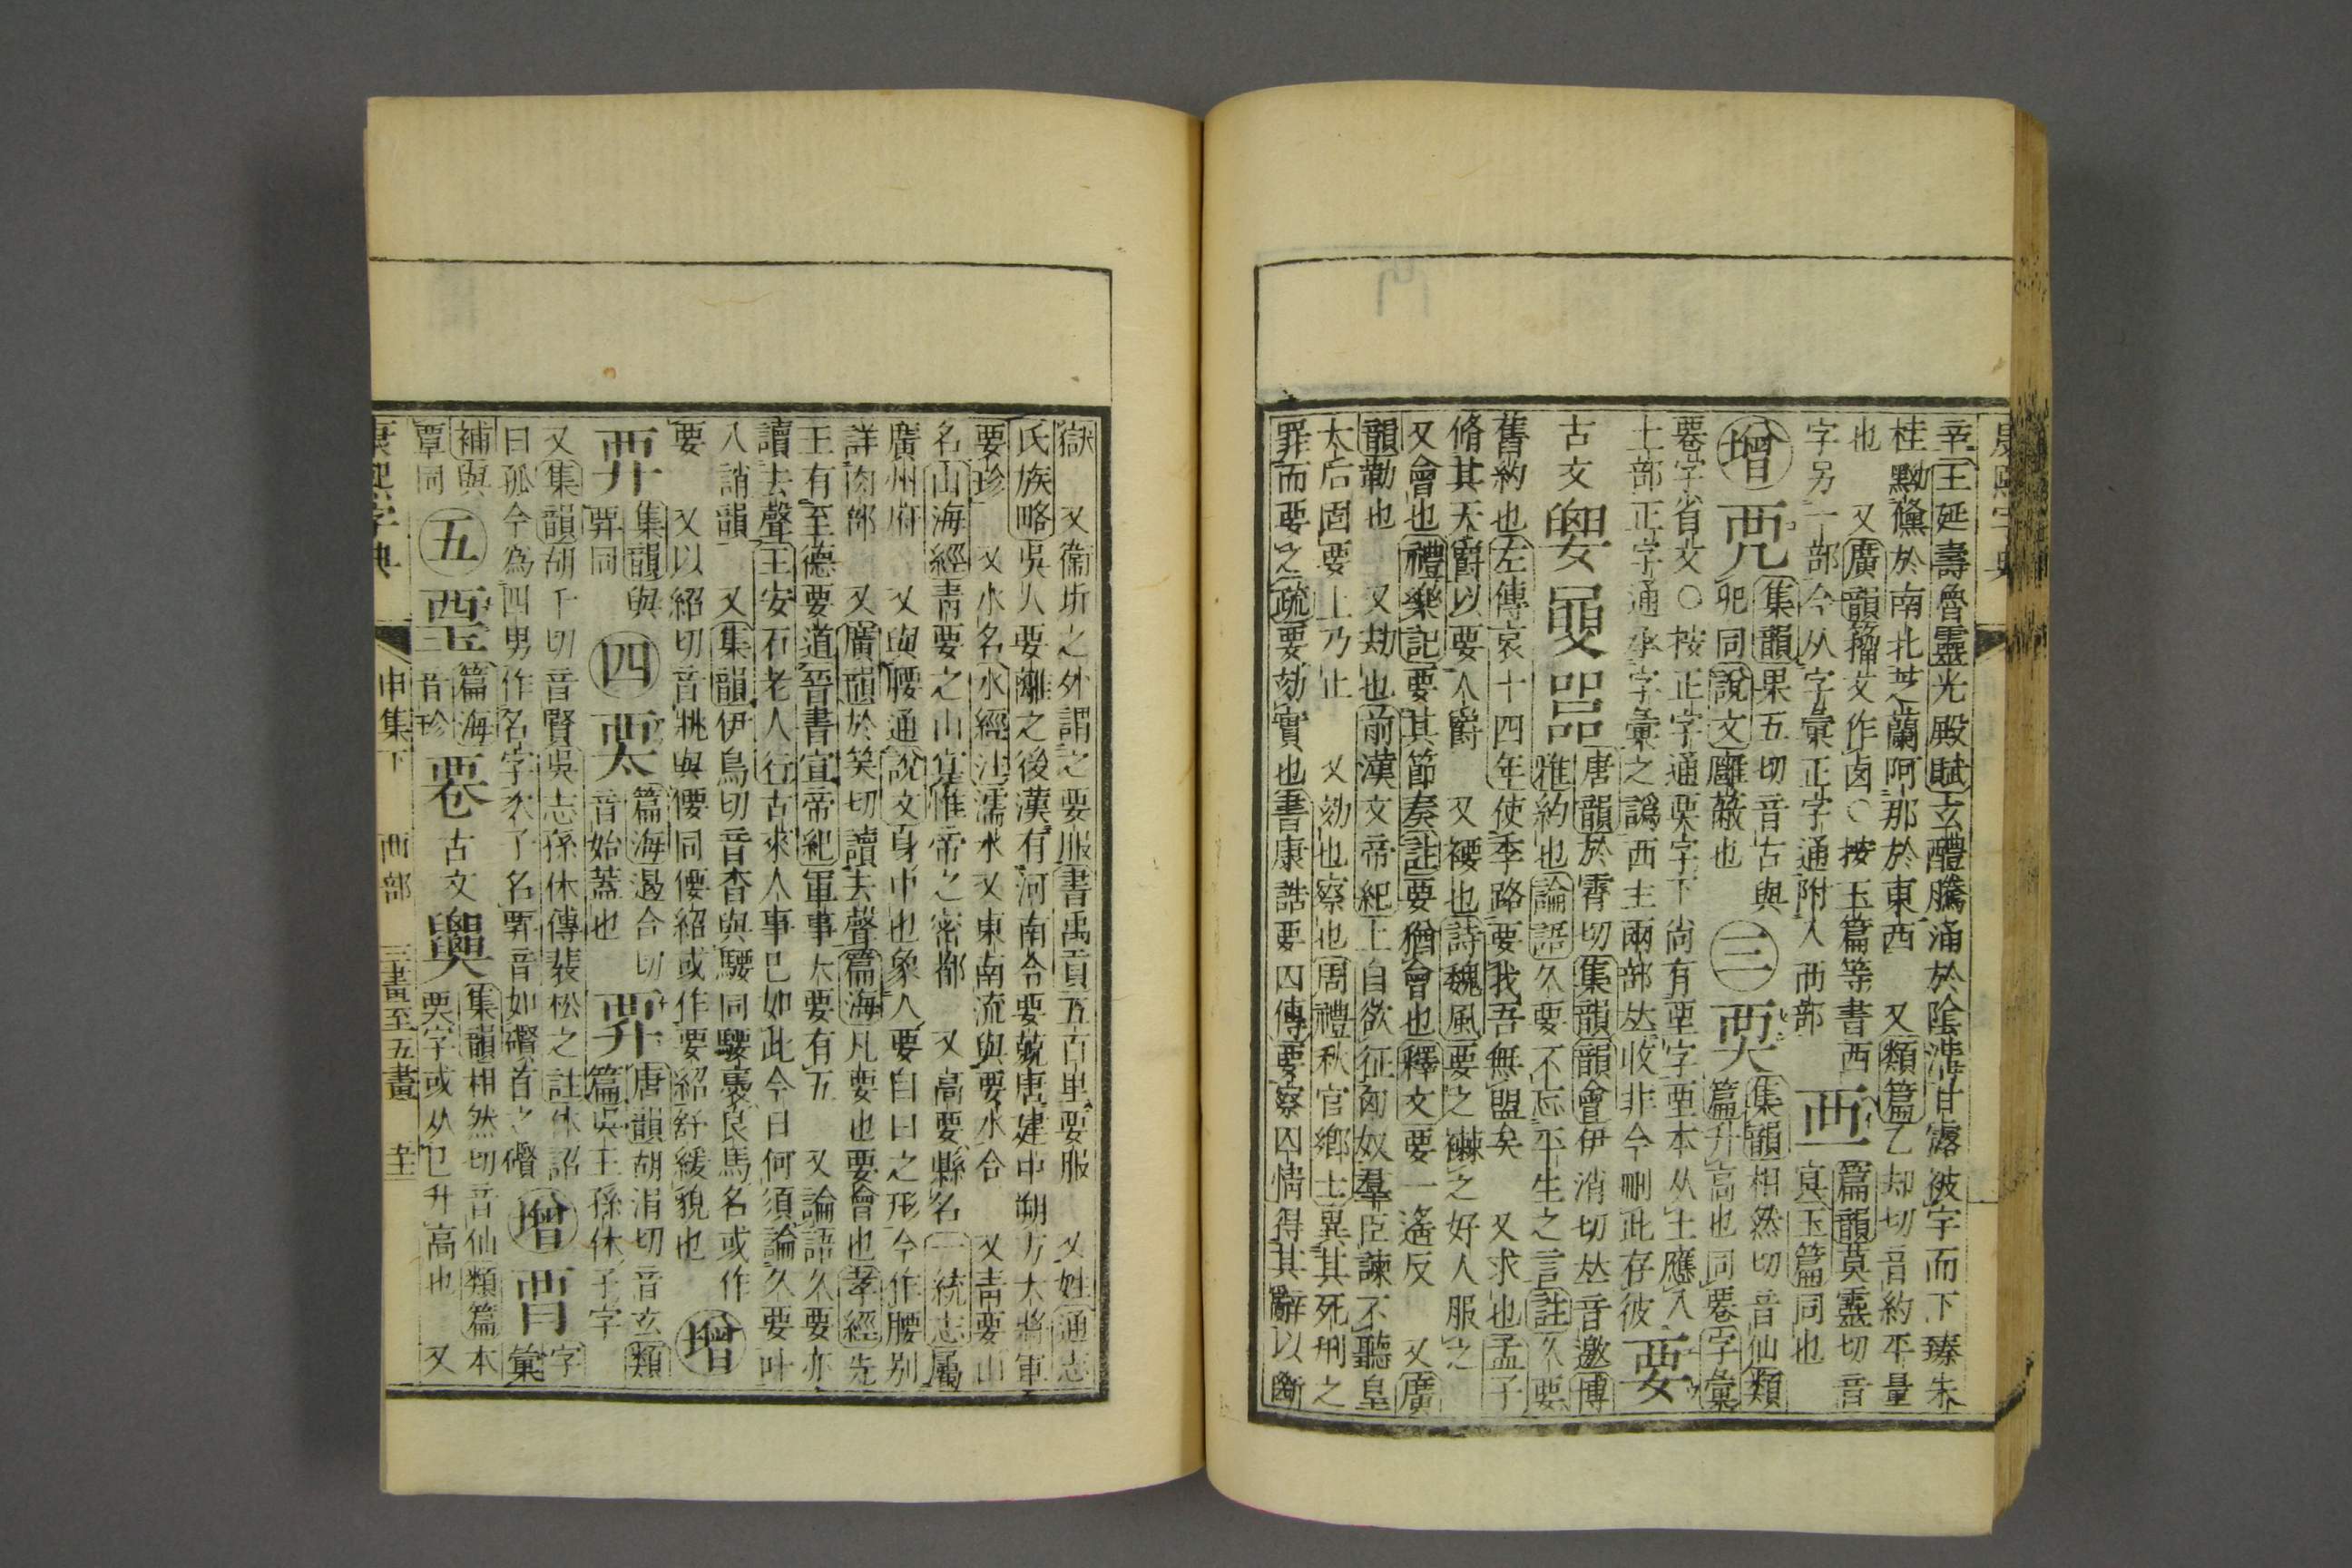 康熙字典
辛王延壽魯靈光殿賦玄醴騰涌於陰溝甘露被宇而下臻朱
桂黝儵於南北芝蘭阿那於東西 又類篇乙却切音約平量
也 又廣韻籀文作卤○按玉篇等書西
字另一部今从字彙正字通附入襾部 襾一 篇韻莫靈切音
冥玉篇同也
增 兕 集韻果五切音古與
𠑹同說文廱蔽也 三 㗔 集韻相然切音仙類
篇升高也同䙴字彙
䙴字省文○按正字通栗字下尚有垔字垔本从土應入
土部正字通承字彙之譌西土兩部𠀤收非今刪此存彼 要
古文 𡢗 𦥼 𠾅 唐韻於霄切集韻韻會伊消切𠀤音邀博
雅約也論語久要不忘平生之言註久要
舊約也左傳哀十四年使季路要我吾無盟矣 又求也孟子
脩其天爵以要人爵 又褄也詩魏風要之襋之好人服之
又會也禮樂記要其節奏註要猶會也釋文要一遙反 又廣
韻勒也 又劫也前漢文帝紀上自欲征匈奴羣臣諫不聽皇
太后固要上乃止 又効也察也周禮秋官鄉士異其死刑之
罪而要之疏要劾實也書康誥要囚傳要察囚情得其辭以斷
獄 又衞圻之外謂之要服書禹貢五百里要服 又姓通志
氏族略吳人要離之後漢有河南令要兢唐建中朔方大將軍
要珍 又水名水經注濡水又東南流與要水合 又靑要山
名山海經靑要之山實惟帝之密都 又高要縣名一統志屬
廣州府 又與腰通說文身中也象人要自臼之形今作腰別
詳肉部 又廣韻於笑切讀去聲篇海凡要也要會也孝經先
王有至德要道晉書宣帝紀軍事大要有五 又論語久要亦
讀去聲王安石老人行古來人事已如此今日何須論久要叶
入誚韻 又集韻伊鳥切音杳與騕同騕褭良馬名或作
要 又以紹切音𦨖與偠同偠紹或作要紹舒緩貌也 增
𢍏 集韻與
𢍏同 四 𧟰 篇海曷合切
音始蓋也 𢍏 唐韻胡涓切音玄類
篇吳王孫休子字
又集韻胡千切音賢吳志孫休傳裴松之註休詔
曰孤今為四男作名字次子名𢍏音如礥首之礥 增 䙳 字彙
補與
覃同 五 𡍼 篇海
音珍 䙴 古文 𦥼 集韻相然切音仙類篇本
䙴字或从㔾升高也 又
康熙字典 申集下 襾部 三畫至五畫